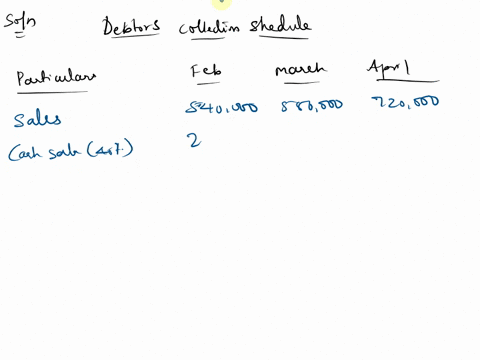 Soln Debtors Collection Shedule
Particulars Feb March April
Sales 540,000 550,000 720,000
Cash sale (40%) 2